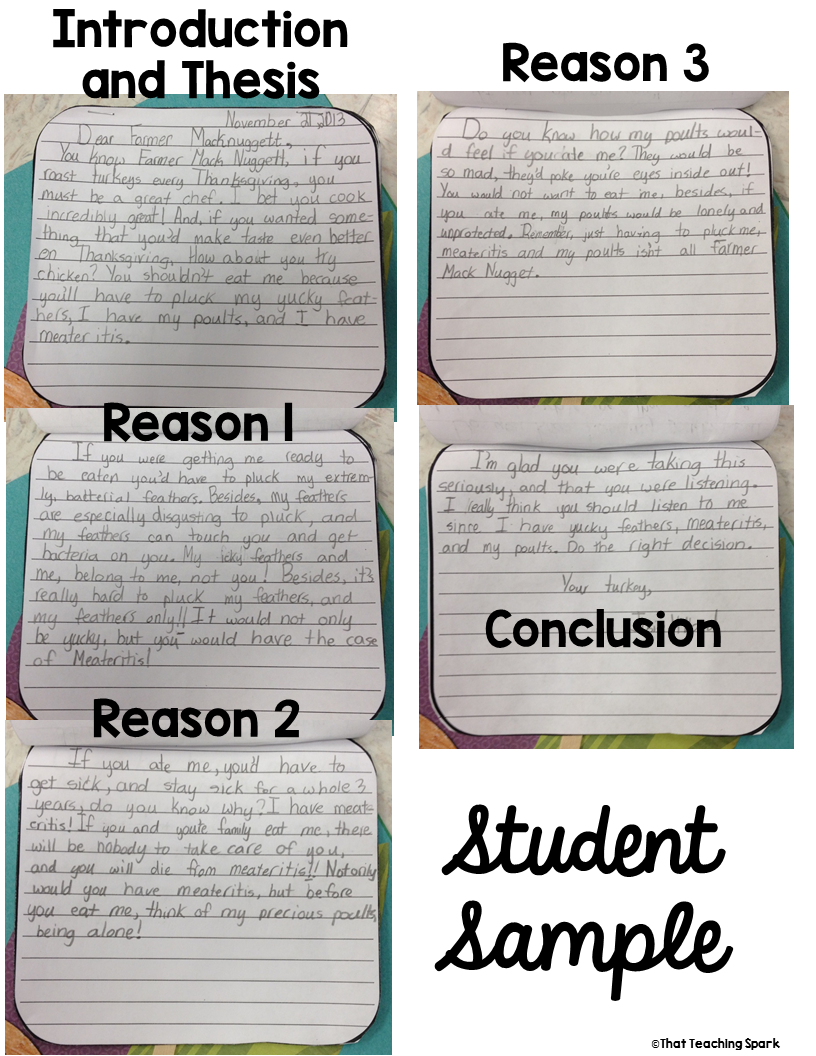 Introduction
and Thesis
November 21, 2013
Dear Farmer Macknuggett,
You know Farmer Mack Nugett, if you
roast turkeys every Thanksgiving, you
must be a great chef. I bet you cook
incredibly great! And, if you wanted some-
thing that you'd make taste even better
on Thanksgiving. How about you try
chicken? You shouldn't eat me because
you'll have to pluck my yucky feat-
hers, I have my poults, and I have
meateritis.
Reason 1
If you were getting me ready to
be eaten you'd have to pluck my extrem-
ly, batterial feathers. Besides, my feathers
are especially disgusting to pluck, and
my feathers can touch you and get
bacteria on you. My icky feathers and
me, belong to me, not you! Besides, it's
really hard to pluck my feathers, and
my feathers only!! It would not only
be yucky, but you would have the case
of Meateritis!
Reason 2
If you ate me, you'd have to
get sick, and stay sick for a whole 3
years, do you know why? I have meat-
eritis! If you and you're family eat me, there
will be nobody to take care of you,
and you will die from meateritis!! Not only
would you have meateritis, but before
you eat me, think of my precious poults,
being alone!
Reason 3
Do you know how my poults woul-
d feel if your'ate me? They would be
so mad, they'd poke you're eyes inside out!
You would not want to eat me, besides, if
you ate me, my poults would be lonely and
unprotected. Remember, just having to pluck me,
meateritis and my poults isn't all Farmer
Mack Nugget.
I'm glad you were taking this
seriously, and that you were listening.
I really think you should listen to me
since I have yucky feathers, meateritis,
and my poults. Do the right decision.
Your turkey,
Conclusion
Student
Sample
©That Teaching Spark